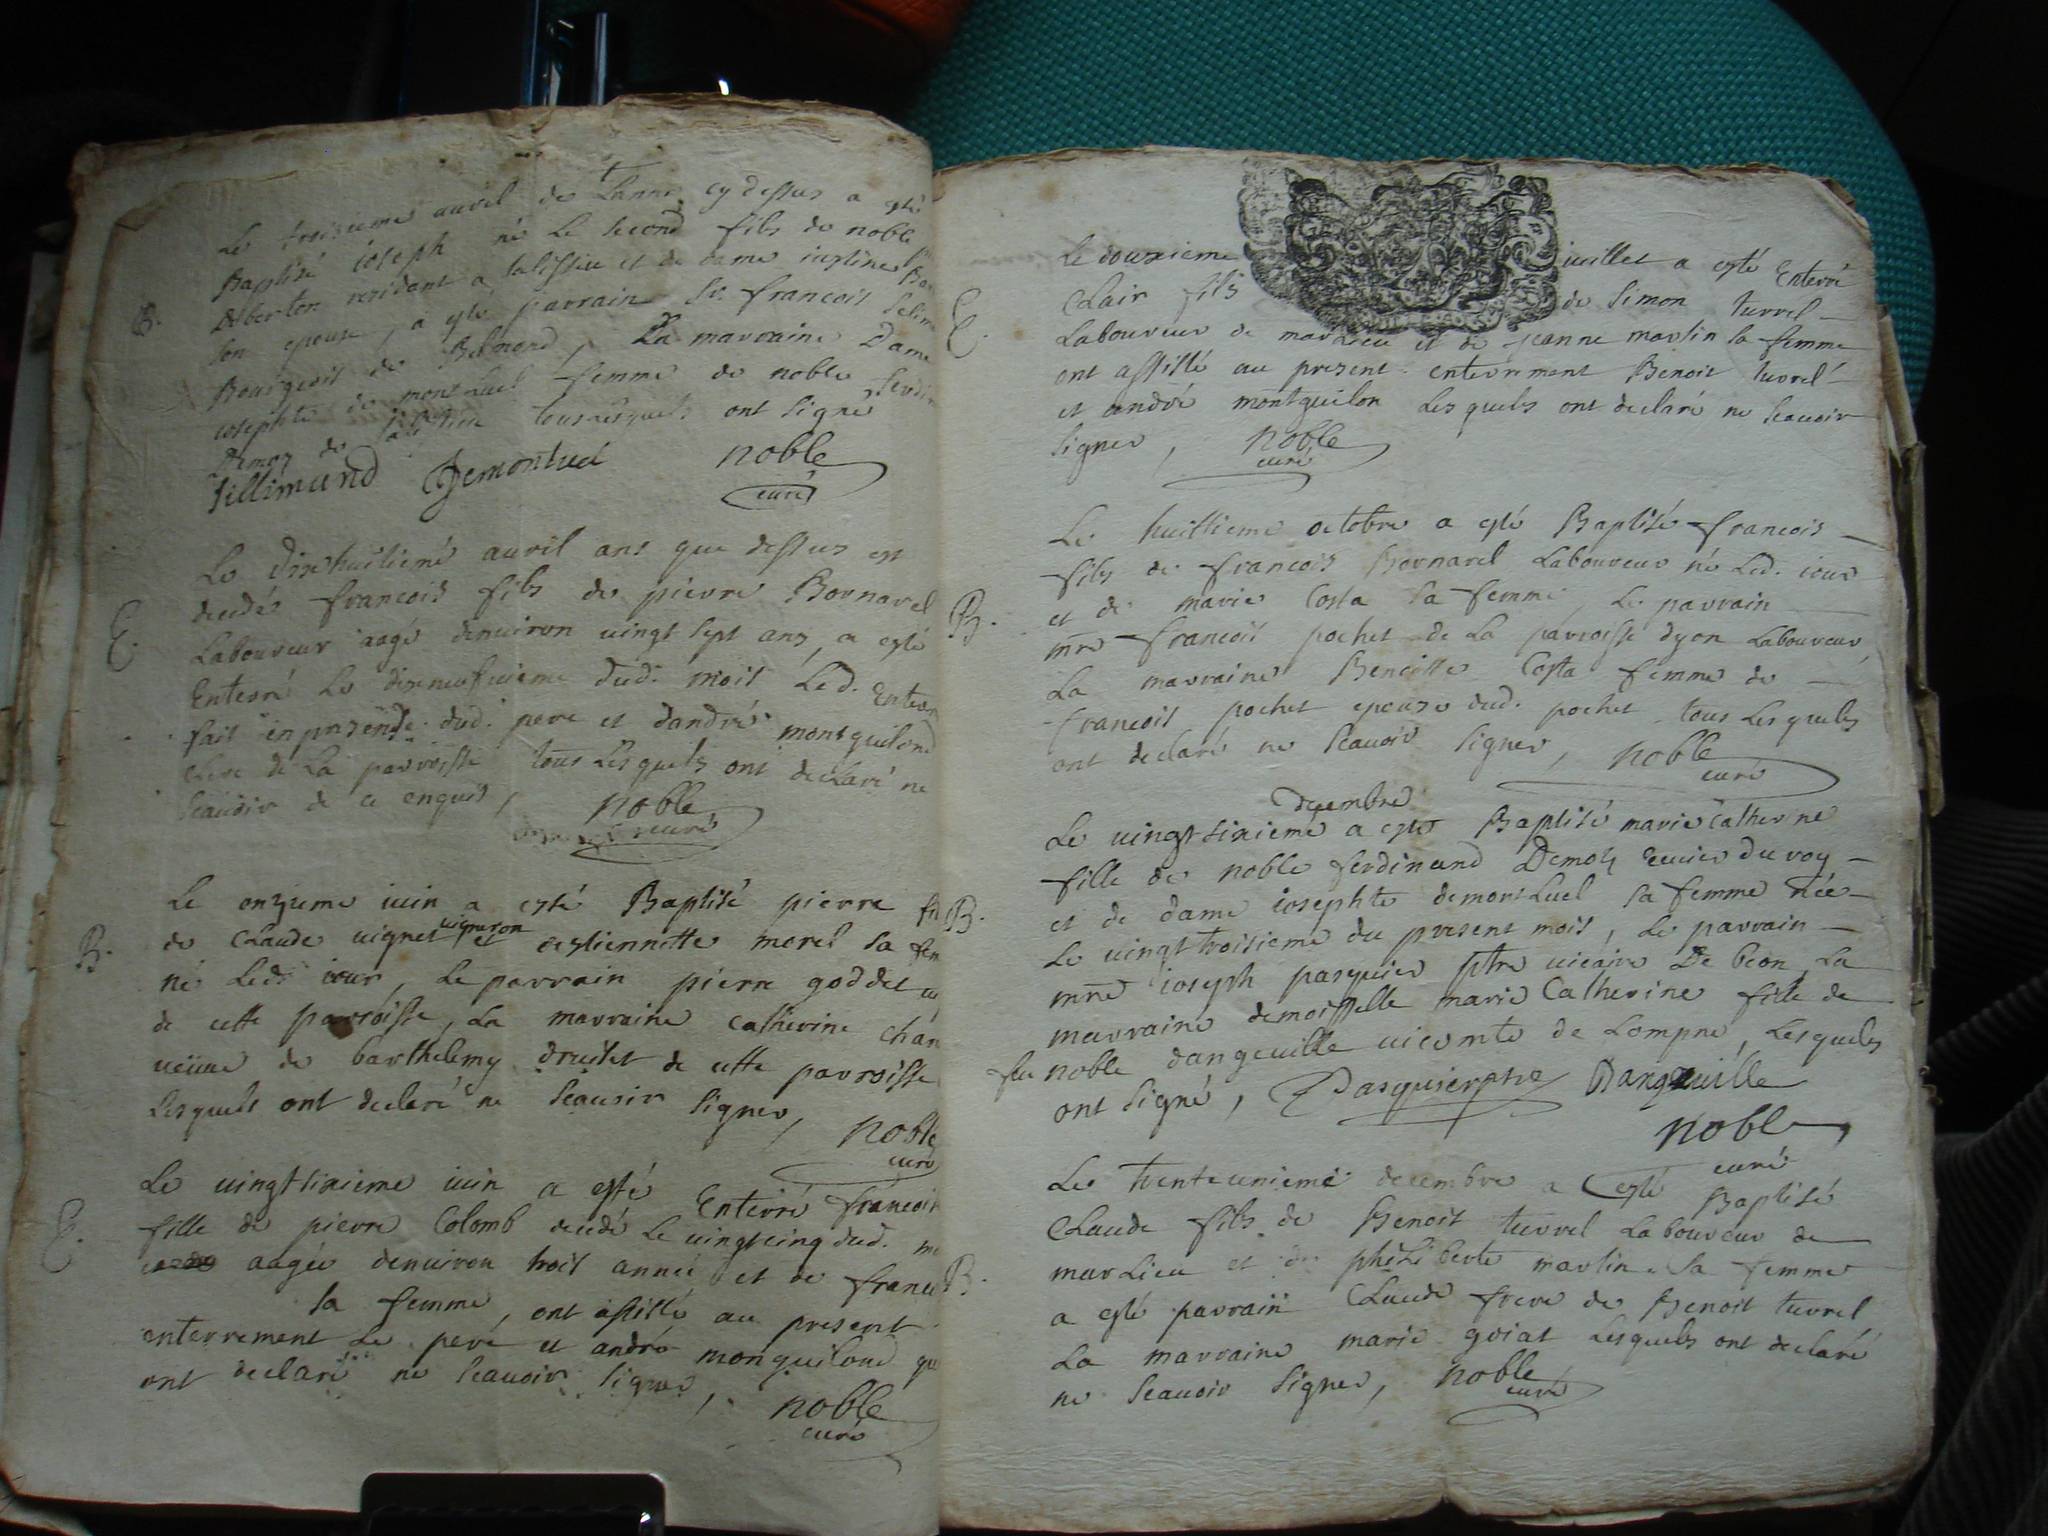 Le troisieme auvil de Lanne cy dessus a esté
Baptisé ioseph né Le second fils de noble
B.
Dlberton residant a talissieu et de dame iustine
son epouse, a esté parrain Sr. francois
Bourgeois de Belmond, La marraine Dame
iosephte de montLuel femme de noble
Demoz de tous Lesquels ont signé
Demontluel noble
curé
Le Dixhuitieme auvil ans que dessus est
decedé francois fils de pierre Bornarel
E.
Laboureur aagé denuiron uingt sept ans, a esté
Enterré Le dixneufuieme dud. mois Led.
fait en presende dud. pere et dandré montguilond
clerc de La parroisse tous Lesquels ont declaré ne
scauoir de ce enquis, noble
curé
Le onzieme iuin a esté Baptisé pierre
uigneron
B.
de Claude uignet et estiennette morel sa fem
né Led. iour, Le parrain pierre goddet
de cette parroisse, La marraine catherine chan
ueüue de barthelemy druitet de cette parroisse
Lesquels ont declaré ne scauoir signer, noble
curé
Le uingtsixieme iuin a esté Enterré francois
E.
fille de pierre Colomb decedé Le uingtcinq dud. m
aagée denuiron trois anneé et de franc
sa femme, ont assisté au present
enterrement Le peré et andré monguilond qu
ont declaré ne scauoir signer, noble
curé
Le douzieme iuillet a esté Enterré
E.
Clair fils de simon turrel
Laboureur de marLieu et de jeanne martin sa femme
ont assisté au present enterrement Benoit turrel
et andré montguilon Lesquels ont declaré ne scauoir
signer, noble
curé
Le huittieme octobre a esté Baptisé francois
fils de francois Bornarel Laboureur né Led. iour
B.
et de marie Costa sa femme, Le parrain
mre francois pochet de La parroisse dyon Laboureur
La marraine Benoitte Costa femme de
francois pochet epouse dud. pochet tous Lesquels
ont declaré ne scauoir signer, noble
curé
decembre
Le uingtsixieme a esté Baptisé marie Catherine
fille de noble ferdinand Demoz Ecuier du roy
B.
et de dame iosephte demontLuel sa femme née
Le uingttroisieme du present mois, Le parrain
mre ioseph pasquier ptre uicaire De beon La
marraine demoiselle marie Catherine fille de
feu noble dangeuille uicomte de Lompne, Lesquels
ont signé, Pasquier ptre Dangeuille
noble
curé
Le trenteunieme decembre a esté Baptisé
Claude fils de Benoit turrel Laboureur de
B.
marLieu et de phiLiberte martin sa femme
a esté parrain Claude frere de Benoit turrel
La marraine marie goiat Lesquels ont declaré
ne scauoir signer, noble
curé